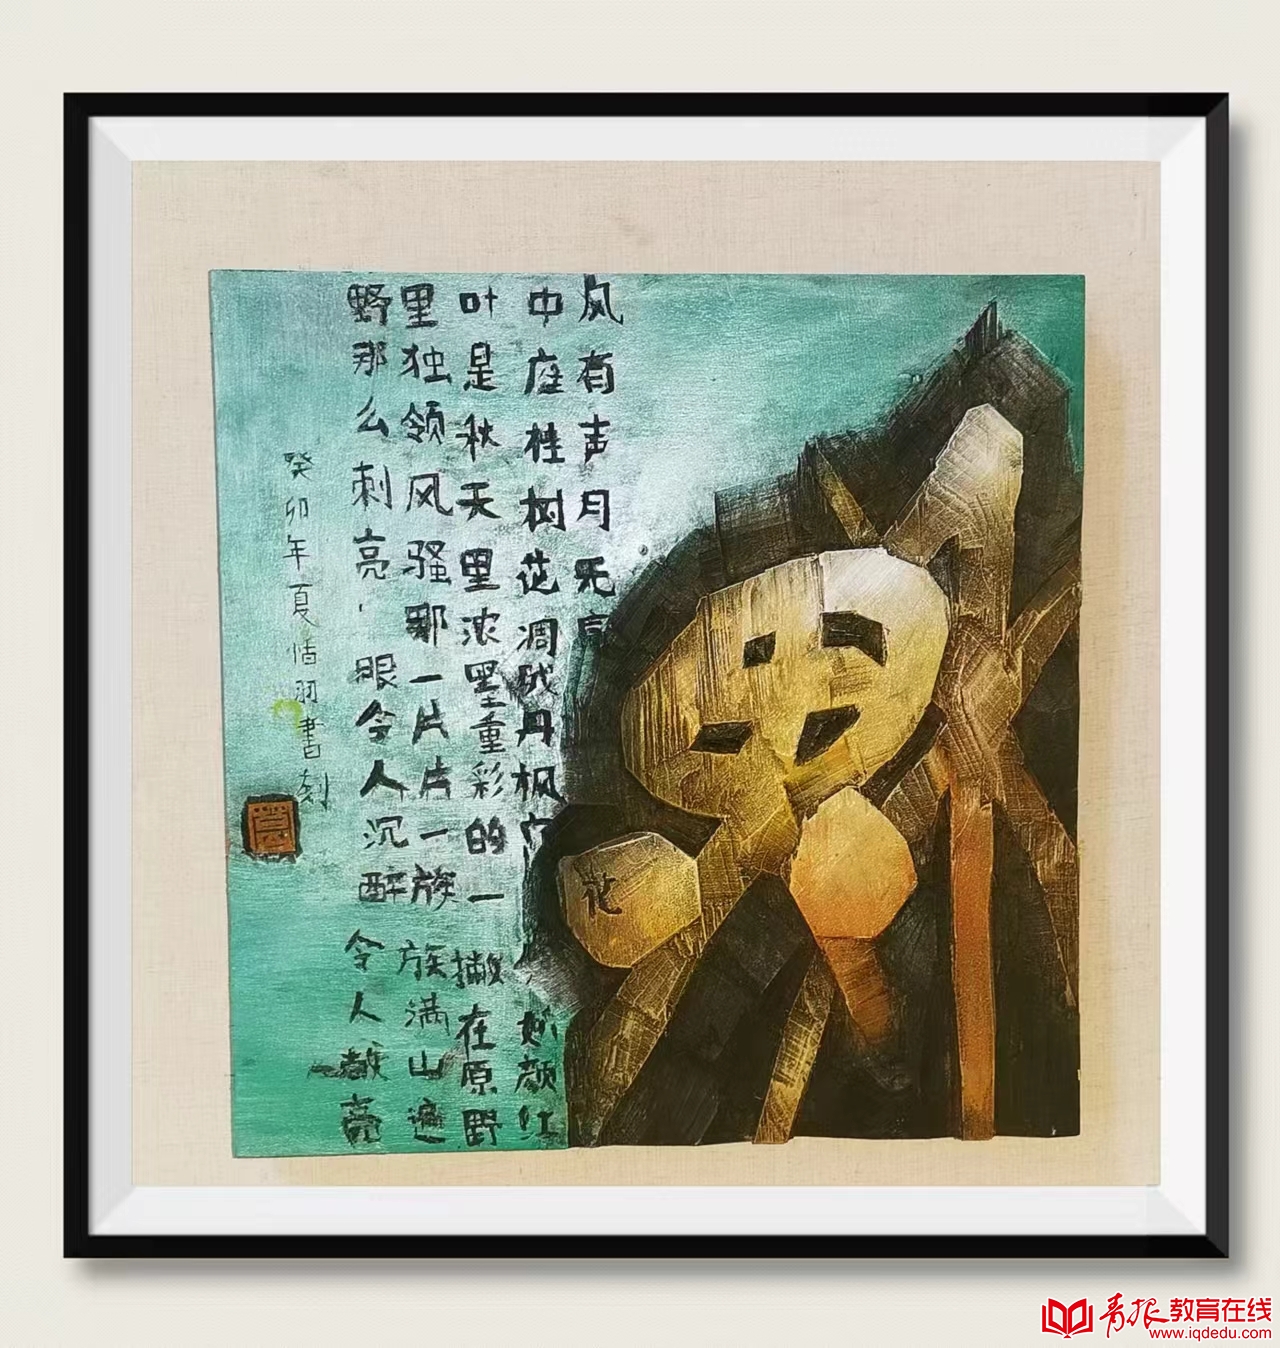 风有声月无言
中庭桂树花凋
丹枫
颜红
叶是秋天里浓墨重彩的一
撇在原野
里独领风骚那一片片一族
族满山遍
野那么刺亮，眼令人沉醉
令人敞亮
癸卯年夏恬羽书刻
花
青报教育在线
www.iqdedu.com